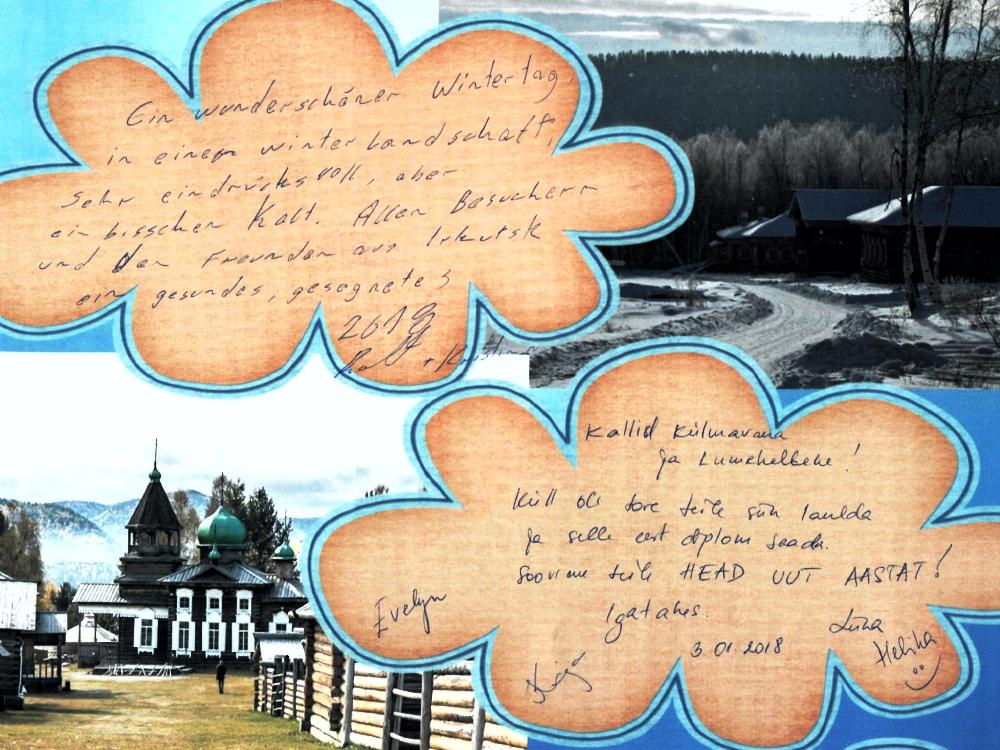 Ein wunderschöner Wintertag,
in einem winterlandschaft,
sehr eindrucksvoll, aber
ein bisschen Kalt. Allen Besuchern
und den Freunden aus Irkutsk
ein gesundes, gesegnetes
2018
+ Kristina
Kallid Külmavana
ja Lumehelbeke!
Küll oli tore teile siin laulda
ja selle eest diplom saada.
Soovime teile HEAD UUT AASTAT!
Igatahes.
Evelyn
3.01.2018
Helina